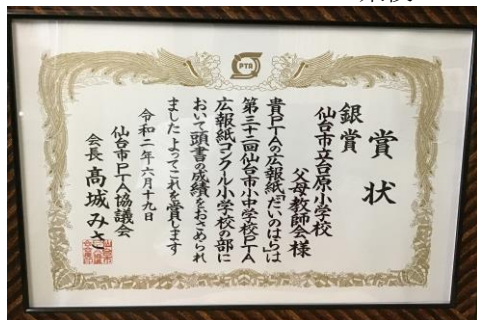 PTA
賞状
銀賞
仙台市立台原小学校
父母教師会様
貴PTAの広報紙「だいのはら」は
第三十二回仙台市小中学校PTA
広報紙コンクール小学校の部に
おいて頭書の成績をおさめられ
ました よってこれを賞します
令和二年六月十九日
仙台市PTA協議会
会長 高城みさ